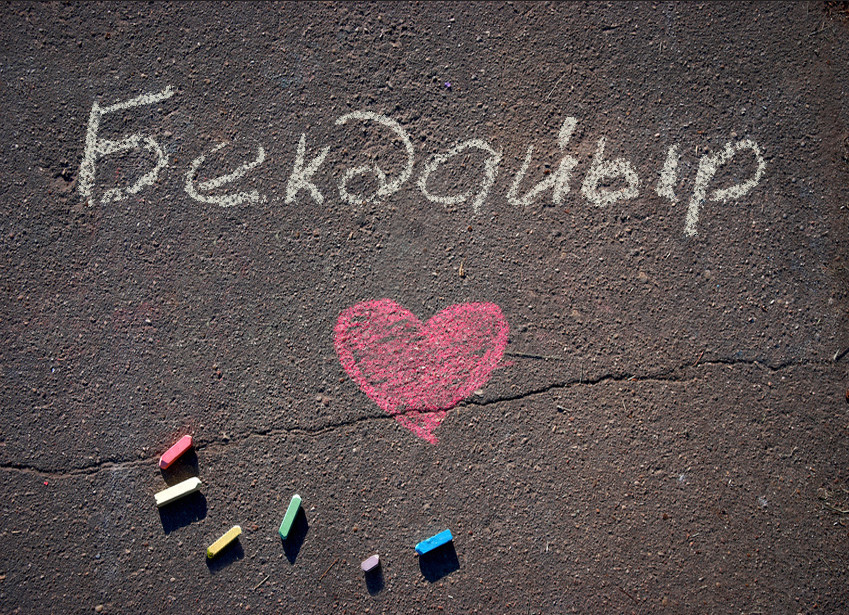 Бекдайыр